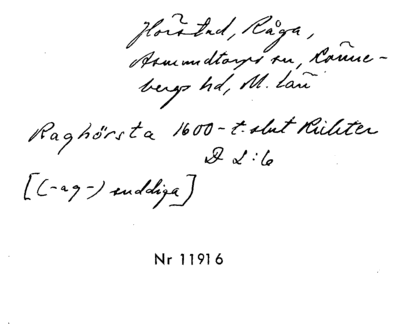 Hörstad, Råga,
Asmundtorps sn, Rönne-
bergs hd, M. län
Raghörsta 1600-t. slut Richter
D L:6
[(-ag-) suddiga]
Nr 11916